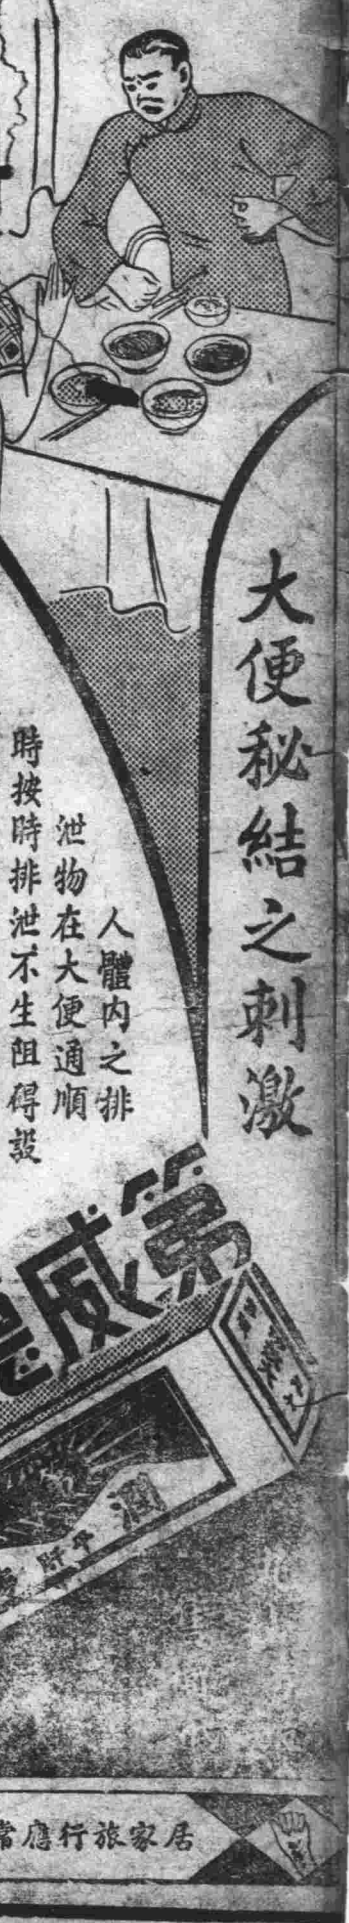 大便秘結之刺激
人體内之排
泄物在大便通順
時按時排泄不生阻碍設
第威德
潤
平肝
居家旅行應常